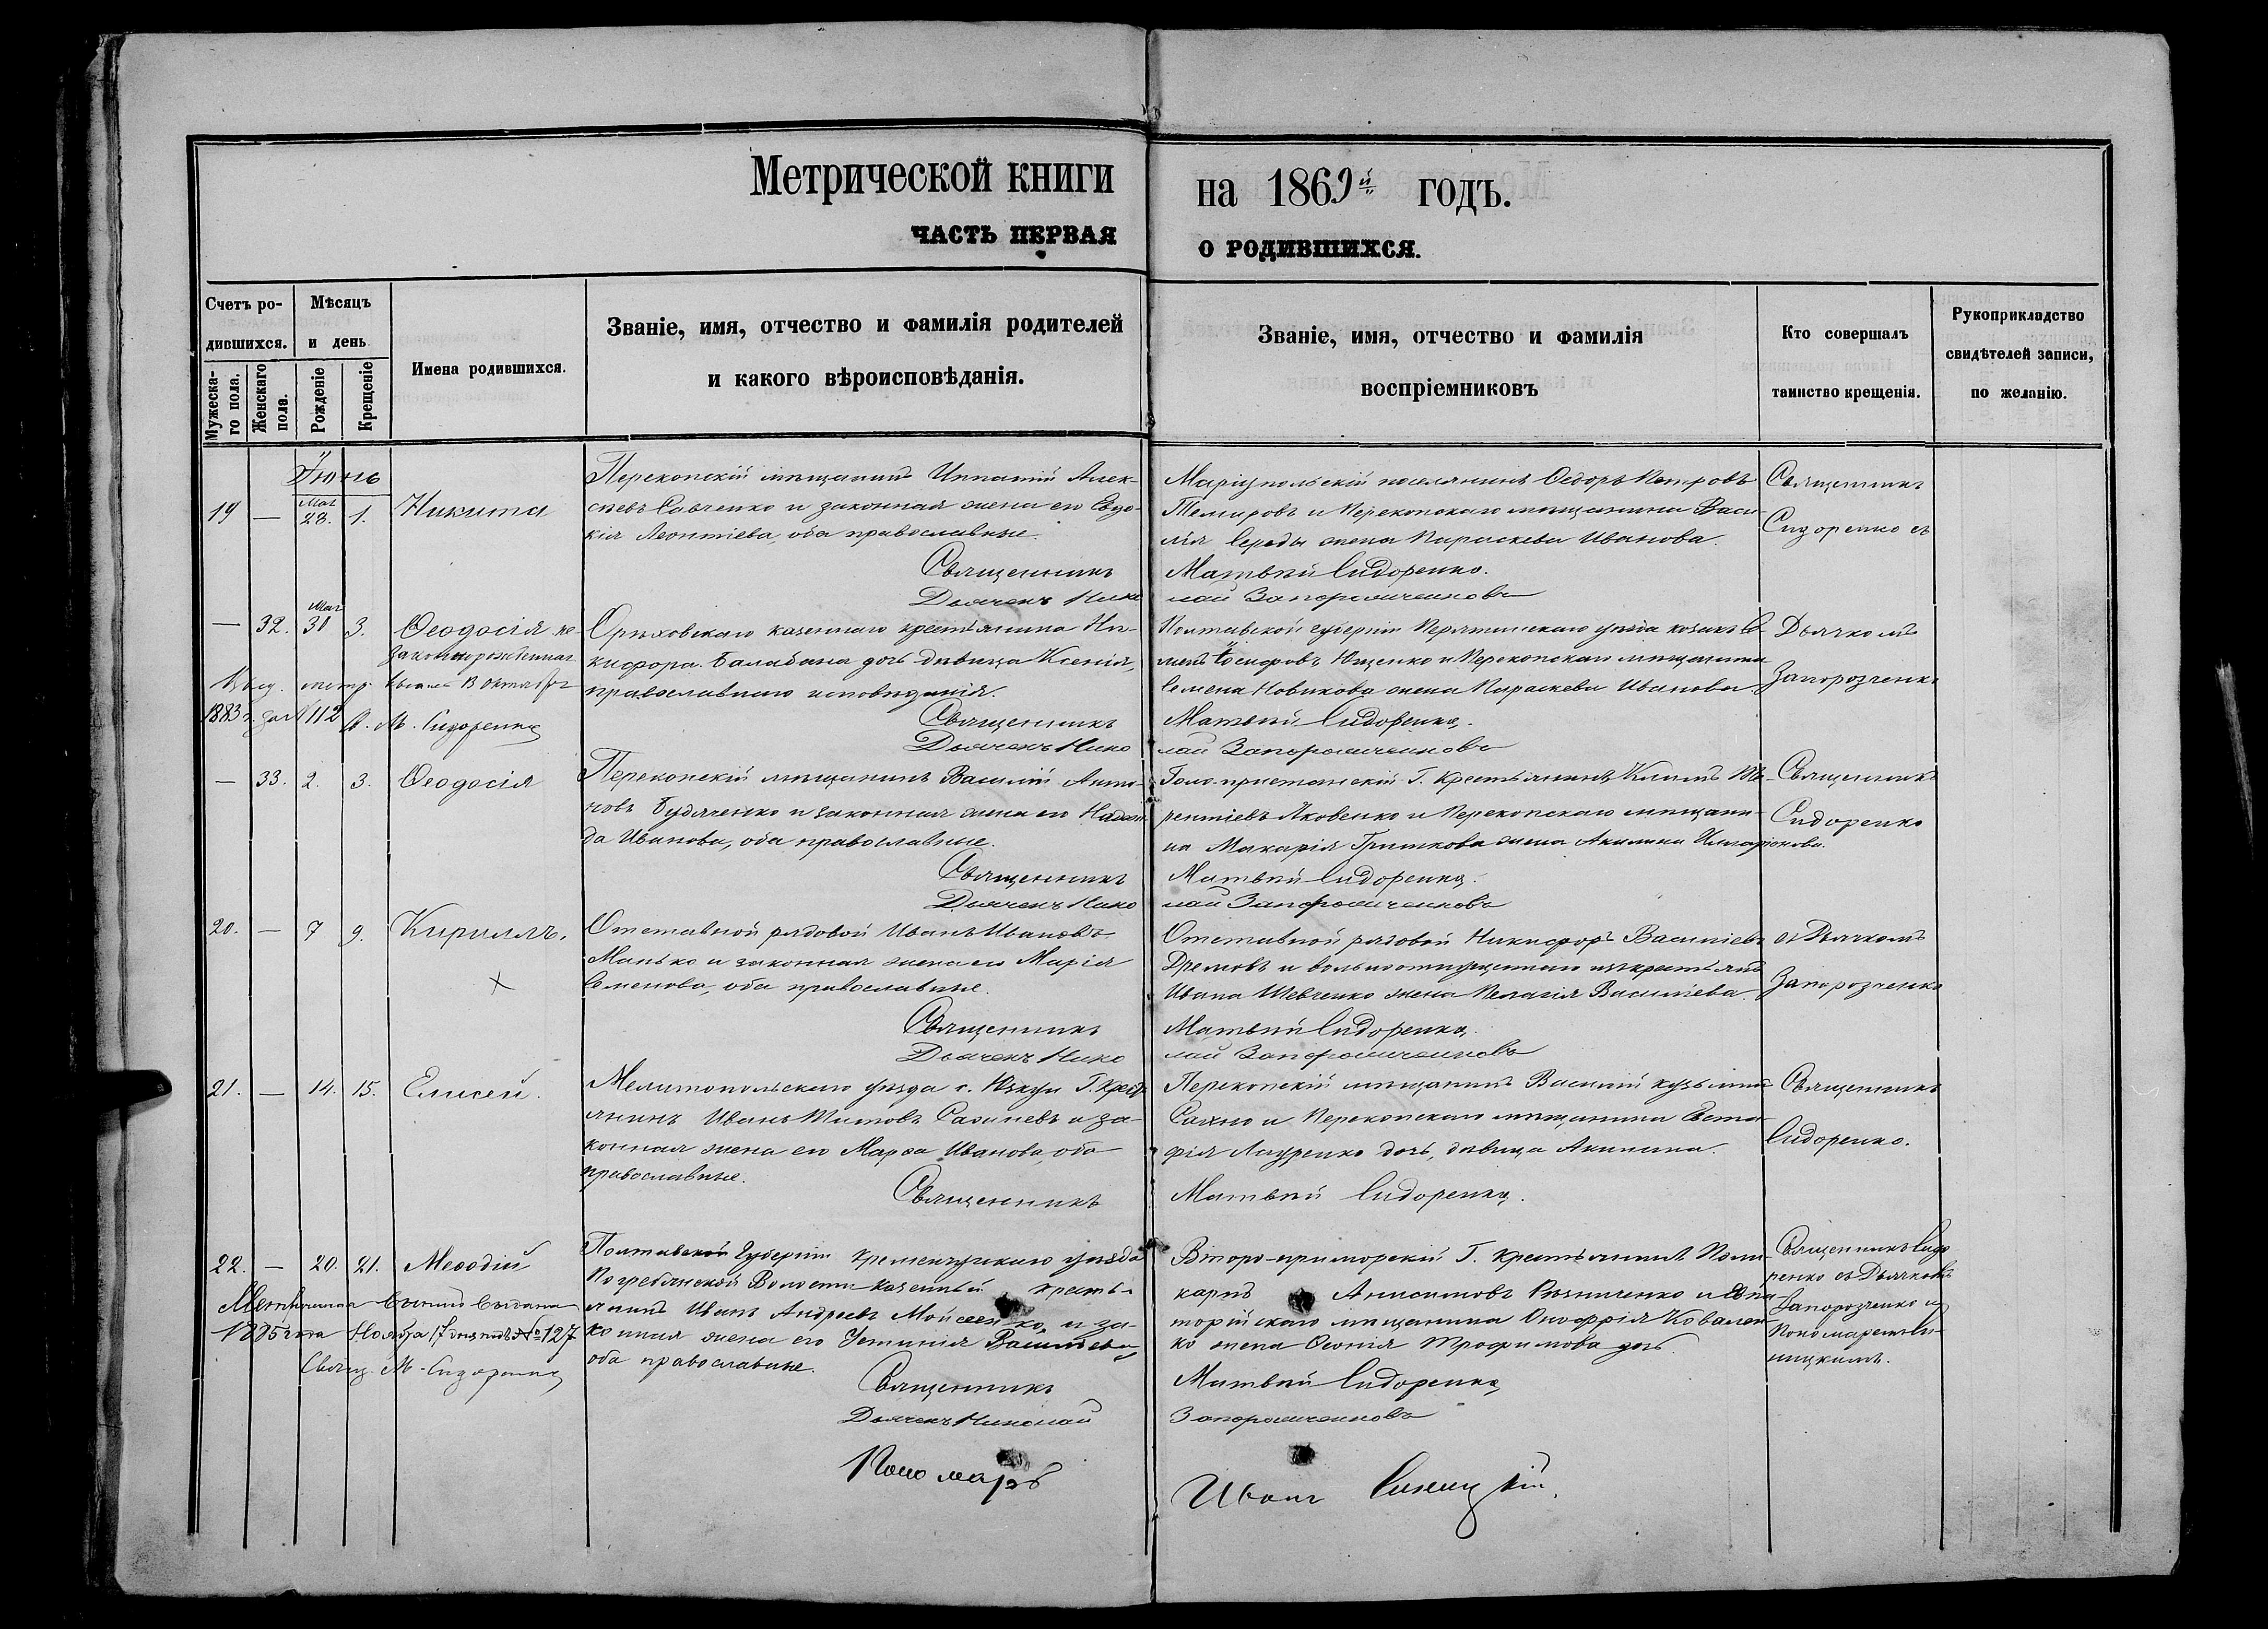 Метрической книги
на 1869й годъ.
ЧАСТЬ ПЕРВАЯ
О РОДИВШИХСЯ.
Счетъ ро-
дившихся.
Мужеска-
го пола.
Женскаго
пола.
Мѣсяцъ
и день
Рожденіе
Крещеніе
Имена родившихся.
Званіе, имя, отчество и фамилія родителей
и какого вѣроисповѣданія.
Званіе, имя, отчество и фамилія
воспріемниковъ
Кто совершалъ
таинство крещенія.
Рукоприкладство
свидѣтелей записи,
по желанію.
Іюнь
19 — Мая 28. 1. Никита
Перекопскій мѣщанинъ Ипатій Алек-
сѣевъ Савченко и законная жена его Евдо-
кія Леонтіева, оба православные.
Священникъ
Дьячекъ Нико
Маріупольскій поселянинъ Ѳедоръ Петровъ
Темировъ и Перекопскаго мѣщанина Васи-
лія Середы жена Параскева Иванова.
Матвѣй Сидоренко.
лай Запорожченковъ
Священникъ
Сидоренко съ
— 32. Мая 30 3. Ѳеодосія не-
законнорожденная
Орѣховскаго казеннаго крестьянина Ни-
кифора Балабана дочь дѣвица Ксенія,
православнаго исповѣданія.
Священникъ
Дьячекъ Нико
1883 г. за №112 С. М. Сидоренко
Полтавской губерніи Пирятинскаго уѣзда козакъ Се-
менъ Іосифовъ Ющенко и Перекопскаго мѣщанина
Семена Новикова жена Параскева Иванова.
Матвѣй Сидоренко.
лай Запорожченковъ
Дьячкомъ
Запорозченко
— 33. 2. 3. Ѳеодосія
Перекопскій мѣщанинъ Василій Анто-
новъ Будяченко и законная жена его
да Иванова, оба православные.
Священникъ
Дьячекъ Нико
Голо-пристанскій Г. крестьянинъ Климъ Те-
рентіевъ Яковенко и Перекопскаго мѣщани-
на Макарія Гришкова жена Акилина Илларіонова.
Матвѣй Сидоренко.
лай Запорожченковъ
Священникъ
Сидоренко
20. — 7 9. Кириллъ.
Отставной рядовой Иванъ Ивановъ
Манько и законная жена его Марія
Семенова, оба православные.
Священникъ
Дьячекъ Нико
Отставной рядовой Никифоръ Василіевъ
Дремовъ и вольноотпущеннаго изъ крестьянъ
Ивана Шевченко жена Пелагія Василіева.
Матвѣй Сидоренко.
лай Запорожченковъ
съ Дьячкомъ
Запорозченко
21. — 14. 15. Елисей.
Мелитопольскаго уѣзда с. Юзкуи Г. крест-
янинъ Иванъ Титовъ и за-
конная жена его Марѳа Иванова, оба
православные.
Священникъ
Перекопскій мѣщанинъ Василій Кузьминъ
Сахно и Перекопскаго мѣщанина Евста-
фія Лауренко дочь, дѣвица Акилина.
Матвѣй Сидоренко.
Священникъ
Сидоренко.
22. — 20. 21. Меѳодій
Полтавской Губерніи Кременчугскаго уѣзда
Погребянской Волости казенный кресть-
янинъ Иванъ Андреевъ Мойсеенко, и за-
конная жена его Устинія Василіева,
оба православные.
Священникъ
Дьячекъ Николай
Пономарь
1895 года Ноября 17 дня подъ №127
Свящ. М. Сидоренко
Второ-приморскій Г. крестьянинъ Поли-
карпъ Анисимовъ Рѣзниченко и Евпа-
торійскаго мѣщанина Онофрія Ковален-
ко жена Ѳеонія Трофимова дочь.
Матвѣй Сидоренко,
Запорожченковъ
Иванъ Синицкій.
Священникъ Сидо
ренко съ Дьячкомъ
Запорозченко и
Пономаремъ Си-
ницкимъ.